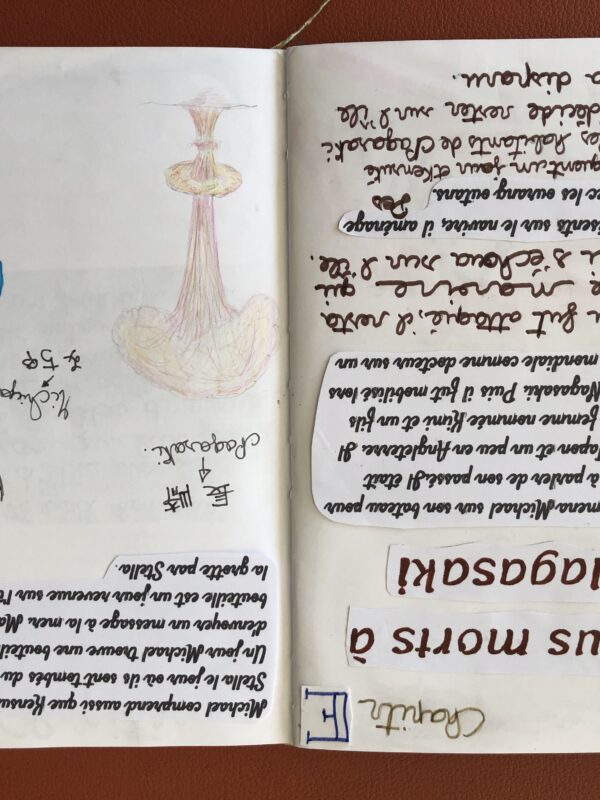 Chapitr
us morts à
agasaki
mena Michael sur son bateau pour
à parler de son passé. Il était
Japon et un peu en Angleterre. Il
femme nommée Kimi et un fils
Nagasaki. Puis il fut mobilisé lors
mondiale comme docteur sur un
fut attaqué, il resta
marine qui
s'échoua sur l'île.
sents sur le navire, il aménage
ec les ourang outans. Des
un jour Kensuké
les habitants de Nagasaki
décide rester sur l'île
a disparu.
Michael comprend aussi que Kensu
Stella le jour où ils sont tombés du
Un jour Michael trouve une bouteil
d'envoyer un message à la mer. Ma
bouteille est un jour revenue sur l'
la grotte par Stella.
長崎
Nagasaki